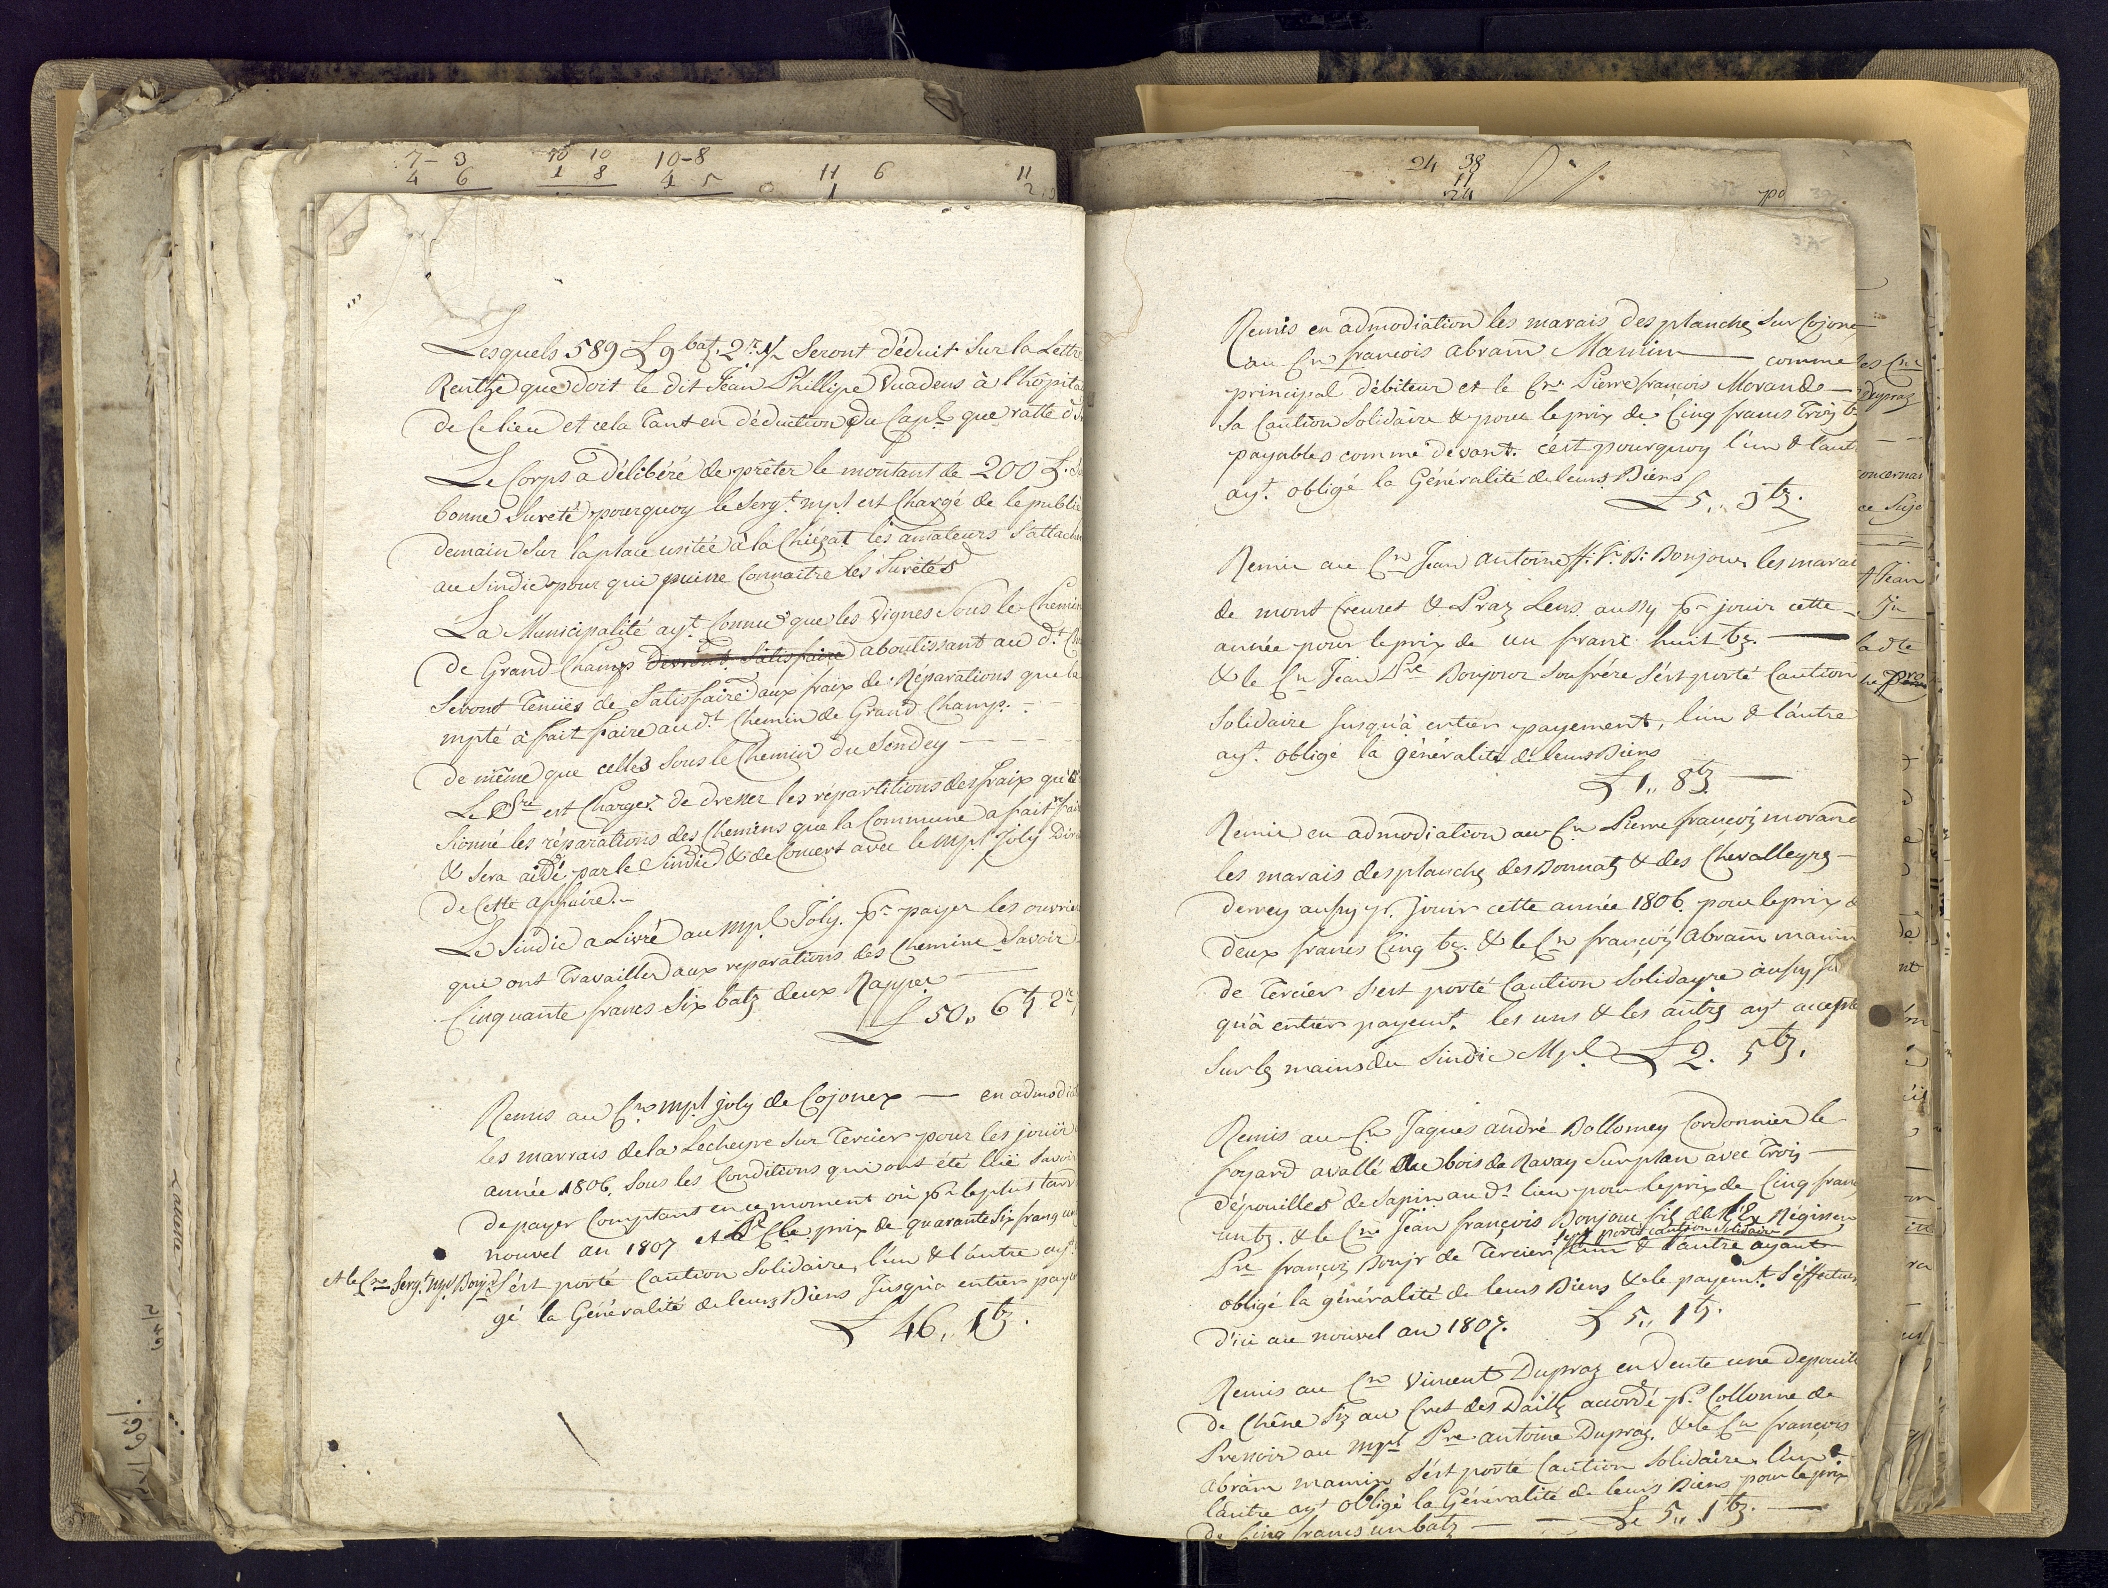 7-3 10 10 10-8 11 6 11
4 6 1 8 4 5 0 1 2
Lesquels 589 L 9 batz. 2 r. 1/2 Seront déduit sur la Lettre
Rentze que doit le dit Jean Phillipe Vuadens à l'hôpita
de Ce lieu et cela Tant en déduction du Capl. que ratte d'
Le Corps à délibéré de prêter le montant de 200 L.
bonne Sureté pourquoy le Sergt. mpl. est Chargé de le publié
demain Sur la place usitée à la Chiézat les amateurs S'attach
au Sindic pour qui puisse Connaitre les Suretés
La Municipalité ayt. Connu que les Vignes Sous le Chemin
de Grand Champs devront Satisfaire aboutissant au dt. Ch
Seront Tenües de Satisfaire aux fraix de Réparations que la
mpté à fait faire au dt. Chemin de Grand Champs. - - -
de même que celles Sous le Chemin du Sendey - - - -
Le Sre est Charge de dresser les répartitions des fraix qu'
sionné les réparations des Chemins que la Commune a fait fai
& Sera aidé par le Sindic & de Concert avec le mpl Joly
de Cette affaire. -
Le Sindic a Livré au Mpl Joly. pr payer les ouvrie
qui ont Travailler aux reparations des Chemins Savoir
Cinquante francs Six batz deux Rappes
L 50,, 6 bz 2 r
Remis au Cn mpl joly de Cojonex — en admodi
les marrais de la Lecheyre Sur Tercier pour les joüir
année 1806. Sous les Conditions qui ont été Lüe Savoir
de payer Comptant en ce moment où pr le plus tard
nouvel an 1807 et le prix de quarante Six franq un
et le Cn Sergt. mpl Bonjr S'ést porté Caution Solidaire, l'un & l'autre ayt
gé la Généralité de leurs Biens Jusqu'a entier paye
L 46,, 1 bz.
24 38
11
24
375
Remis en admodiation les marais des planches Sur Cojone
au Cn françois abram Mamin — comme
principal débiteur et le Cn. Pierre françois Morand —
Sa Caution Solidaire & pour le prix de Cinq francs Trois bz
payables comme devant. c'ést pourquoy l'un & l'aut
ayt. obligé la Généralité de leurs Biens
L 5,, 3 bz.
Remis au Cn Jean antoine ff. Jn. B: Bonjour les marai
de mont Creuset & Praz Lens aussy pr jouir cette
année pour le prix de un franc huit bz. —
& le Cn Jean Pre Bonjour Son frére S'ést porté Caution
Solidaire Jusqu'à entier payement, l'un & l'autre
ayt. obligé la généralité de leurs Biens
L 1,, 8 bz —
Remis en admodiation au Cn Pierre françois morand
les marais des planches des Bonnatz & des Chevalleyres —
derrey aussy pr. jouir cette année 1806. pour le prix d
deux francs Cinq bz. & le Cn françois Abram mamin
de Tercier S'est porté Caution Solidayre aussy Ju
qu'à entier payemt. les uns & les autres ayt accepté
Sur les mains du Sindic Mpl L 2. 5 bz.
Remis au Cn Jaques andré Dollomey Cordonnier le
foyard avallé du bois de Ravay Sur plan avec Trois —
dépouilles de Sapin au dt. lieu pour le prix de Cinq franc
un bz. & le Cn Jean françois Bonjour fils de l'Ex Régisseu
S'est porté caution Solidaire
Pre françois Bonjr de Tercier l'un & l'autre ayant
obligé la généralité de leurs Biens & le payemt. S'éffectuer
d'ici au nouvel an 1807. L 5,, 1 bz.
Remis au Cn Vincent Dupraz en Vente une depouil
de Chêne Siz au Cret des Dailles accordé pr. Collonne de
Pressoir au mpl Pre antoine Dupraz. & le Cn françois
abram mamin S'ést porté Caution Solidaire l'un &
l'autre ayt obligé la Généralité de leurs Biens pour le prix
de Cinq francs un batz — — L 5,, 1 bz. —